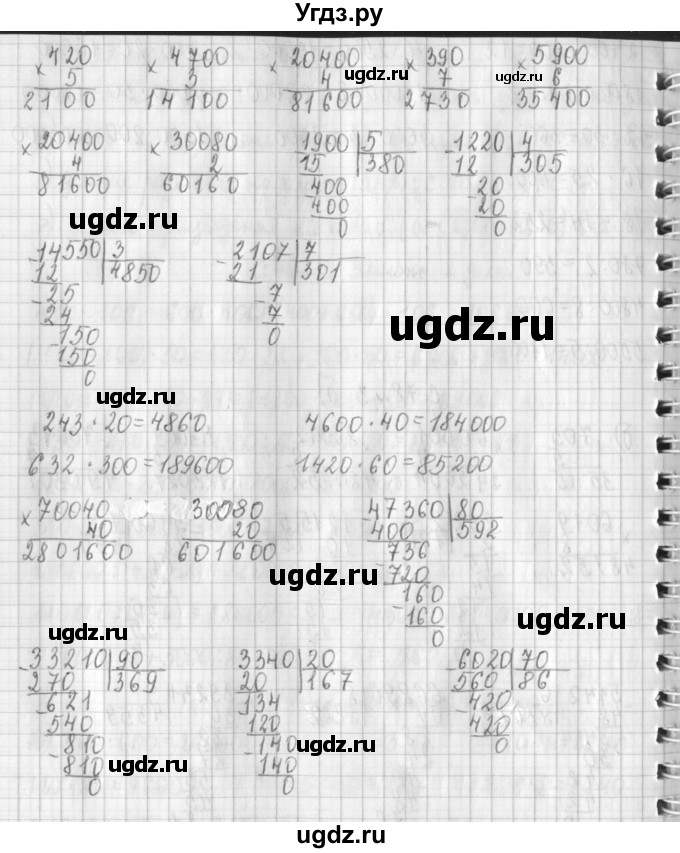 Угдз.ру
×420 ×4700 ×20400 ×390 ×5900
5 3 4 7 6
2100 14100 81600 2730 35400
ugdz.ru ugdz.ru
×20400 ×30080 1900|5 -1220|4
4 2 15 |380 12 |305
81600 60160 400 -20
400 20
0 0
ugdz.ru ugdz.ru
-14550|3 -2107|7
12 |4850 21 |301
-25 -7
24 7
-150 0
150
0
ugdz.ru
ugdz.ru
243·20=4860 4600·40=184000
632·300=189600 1420·60=85200
×70040 30080 -47360|80
40 20 400 |592
2801600 601600 736
-720
160
-160
0
ugdz.ru ugdz.ru
ugdz.ru
-33210|90 3340|20 -6020|70
270 |369 20 |167 560 |86
-621 134 -420
540 120 420
-810 -140 0
810 140
0 0
ugdz.ru ugdz.ru ugdz.ru
ugdz.ru